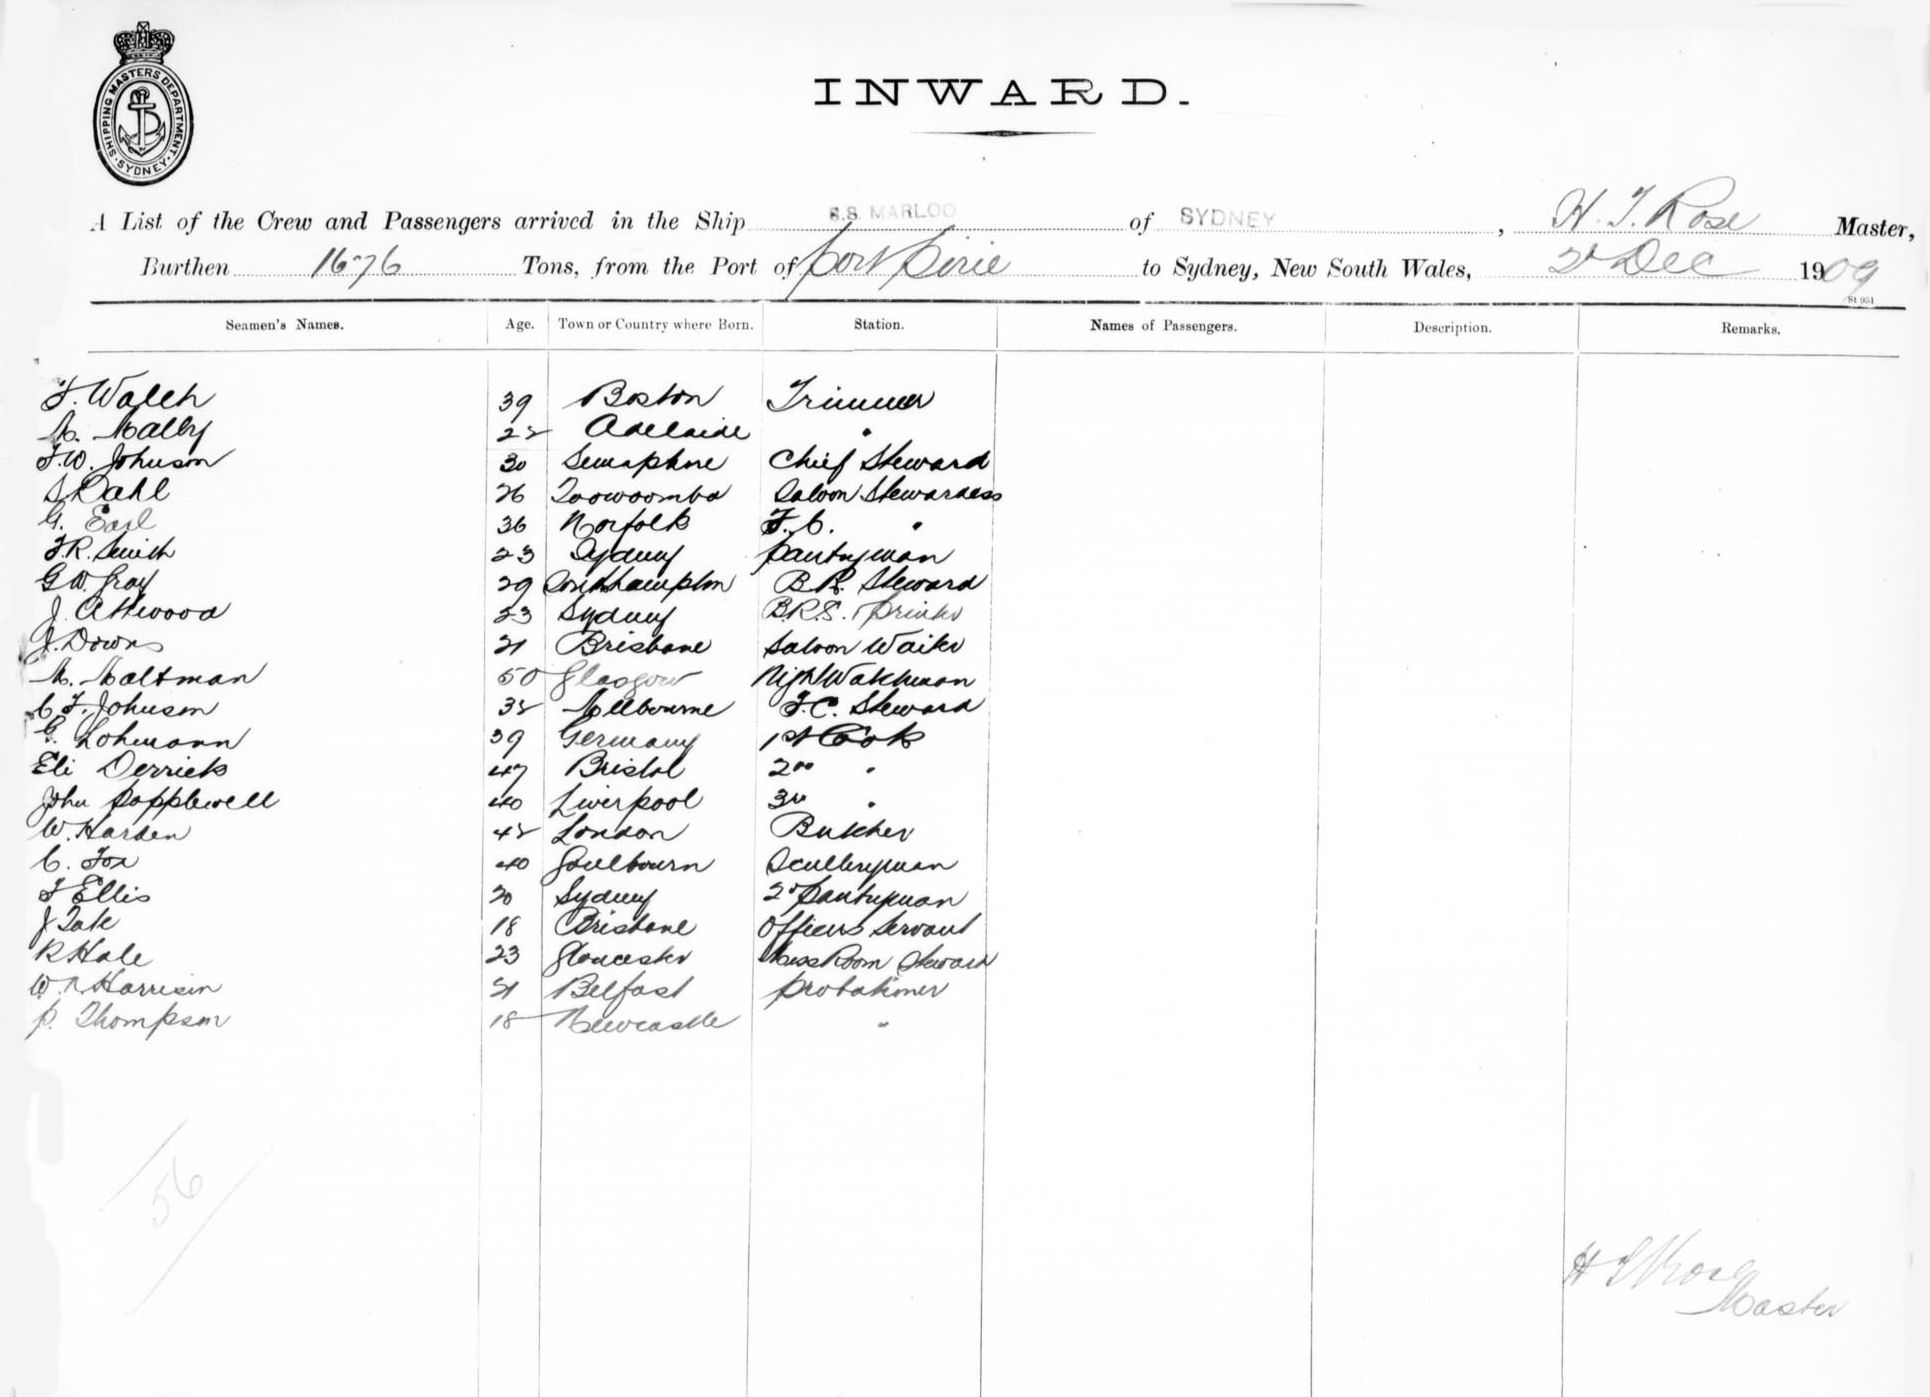 SHIPPING MASTERS DEPARTMENT. SYDNEY.
INWARD.
A List of the Crew and Passengers arrived in the Ship S.S. MARLOO of SYDNEY, H. T. Rose Master,
Burthen 1676 Tons, from the Port of Port Pirie to Sydney, New South Wales, 2d Dec 1909
St 951
Seamen's Names. Age. Town or Country where Born. Station. Names of Passengers. Description. Remarks.
Walch 39 Boston Trimmer
M. Malby 22 Adelaide "
F.W. Johnson 30 Semaphore Chief Steward
S Dahl 26 Toowoomba Saloon Stewardess
G. Earl 36 Norfolk F.C. "
F.R. Smith 23 Sydney Pantryman
G W. Gray 29 Southampton B.R. Steward
J. Attwood 23 Sydney B.R.S.
J. Downs 21 Brisbane Saloon Waiter
M. Maltman 50 Glasgow Night Watchman
C F. Johnson 32 Melbourne F.C. Steward
G. Lohmann 39 Germany 1st Cook
Eli Derrick 47 Bristol 2nd "
John Popplewell 40 Liverpool 3rd "
W. Harden 42 London Butcher
C. Fox 40 Goulbourn Sculleryman
F Ellis 20 Sydney 2d Pantryman
J Tate 18 Brisbane Officers Servant
R Hale 23 Gloucester Mess Room Steward
W. R. Harrison 21 Belfast Probationer
P. Thompson 18 Newcastle "
56
H T Rose
Master